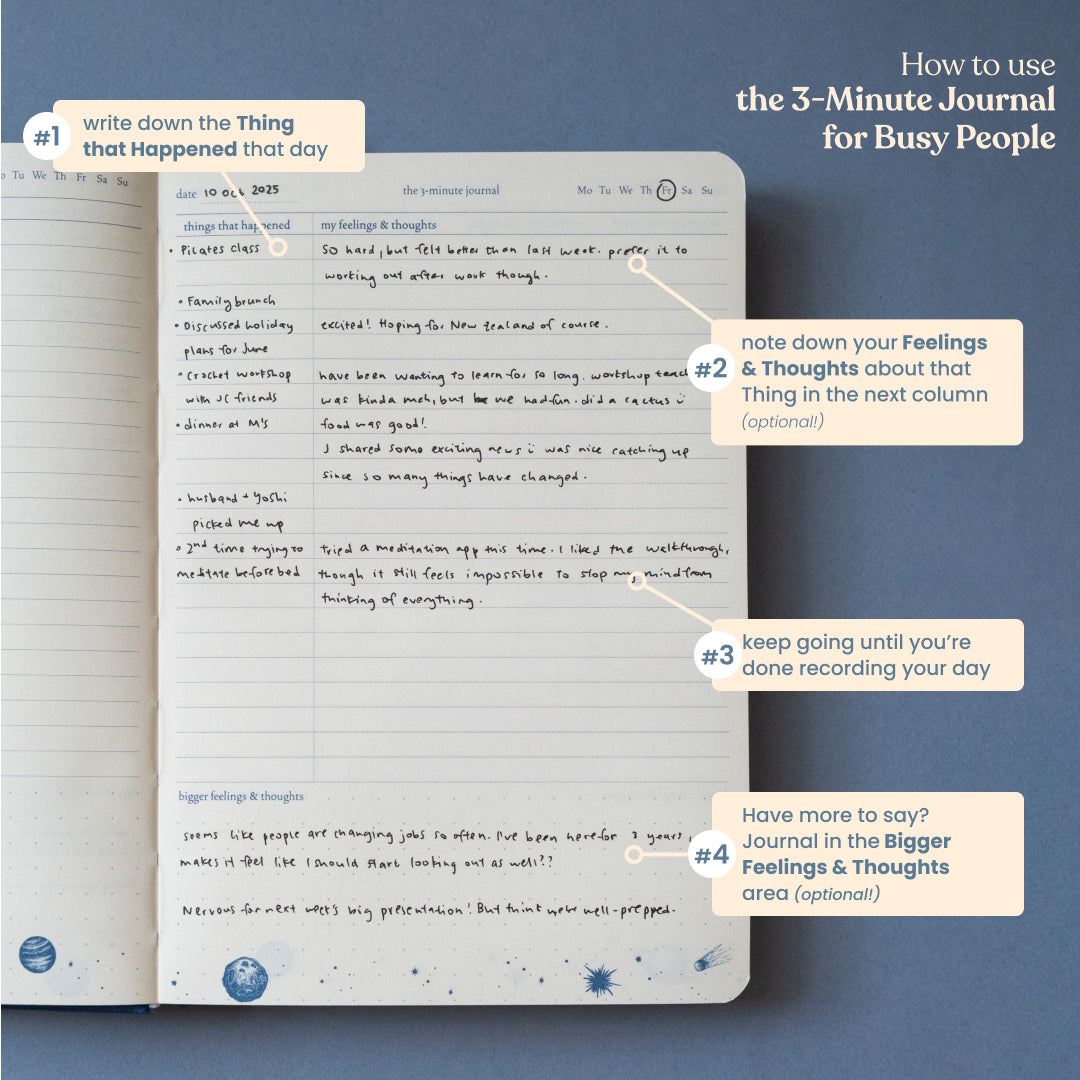 How to use
the 3-Minute Journal
for Busy People
#1
write down the Thing
that Happened that day
Tu We Th Fr Sa Su
date 10 Oct 2025
the 3-minute journal
Mo Tu We Th Fr Sa Su
things that happened
my feelings & thoughts
• Pilates class
So hard, but felt better than last week. prefer it to
working out after work though.
• Family brunch
• Discussed holiday
plans for June
excited! Hoping for New Zealand of course.
• Crochet workshop
with JC friends
have been wanting to learn for so long. workshop
was kinda meh, but we had fun. did a cactus
• dinner at M's
food was good!
I shared some exciting news was nice catching up
since so many things have changed.
• husband + Yoshi
picked me up
• 2nd time trying to
meditate before bed
tried a meditation app this time. I liked the walkthrough,
though it still feels impossible to stop my mind from
thinking of everything.
#2
note down your Feelings
& Thoughts about that
Thing in the next column
(optional!)
#3
keep going until you're
done recording your day
bigger feelings & thoughts
seems like people are changing jobs so often. I've been here for 3 years,
makes it feel like I should start looking out as well??
Nervous for next week's big presentation! But think we're well-prepped.
#4
Have more to say?
Journal in the Bigger
Feelings & Thoughts
area (optional!)